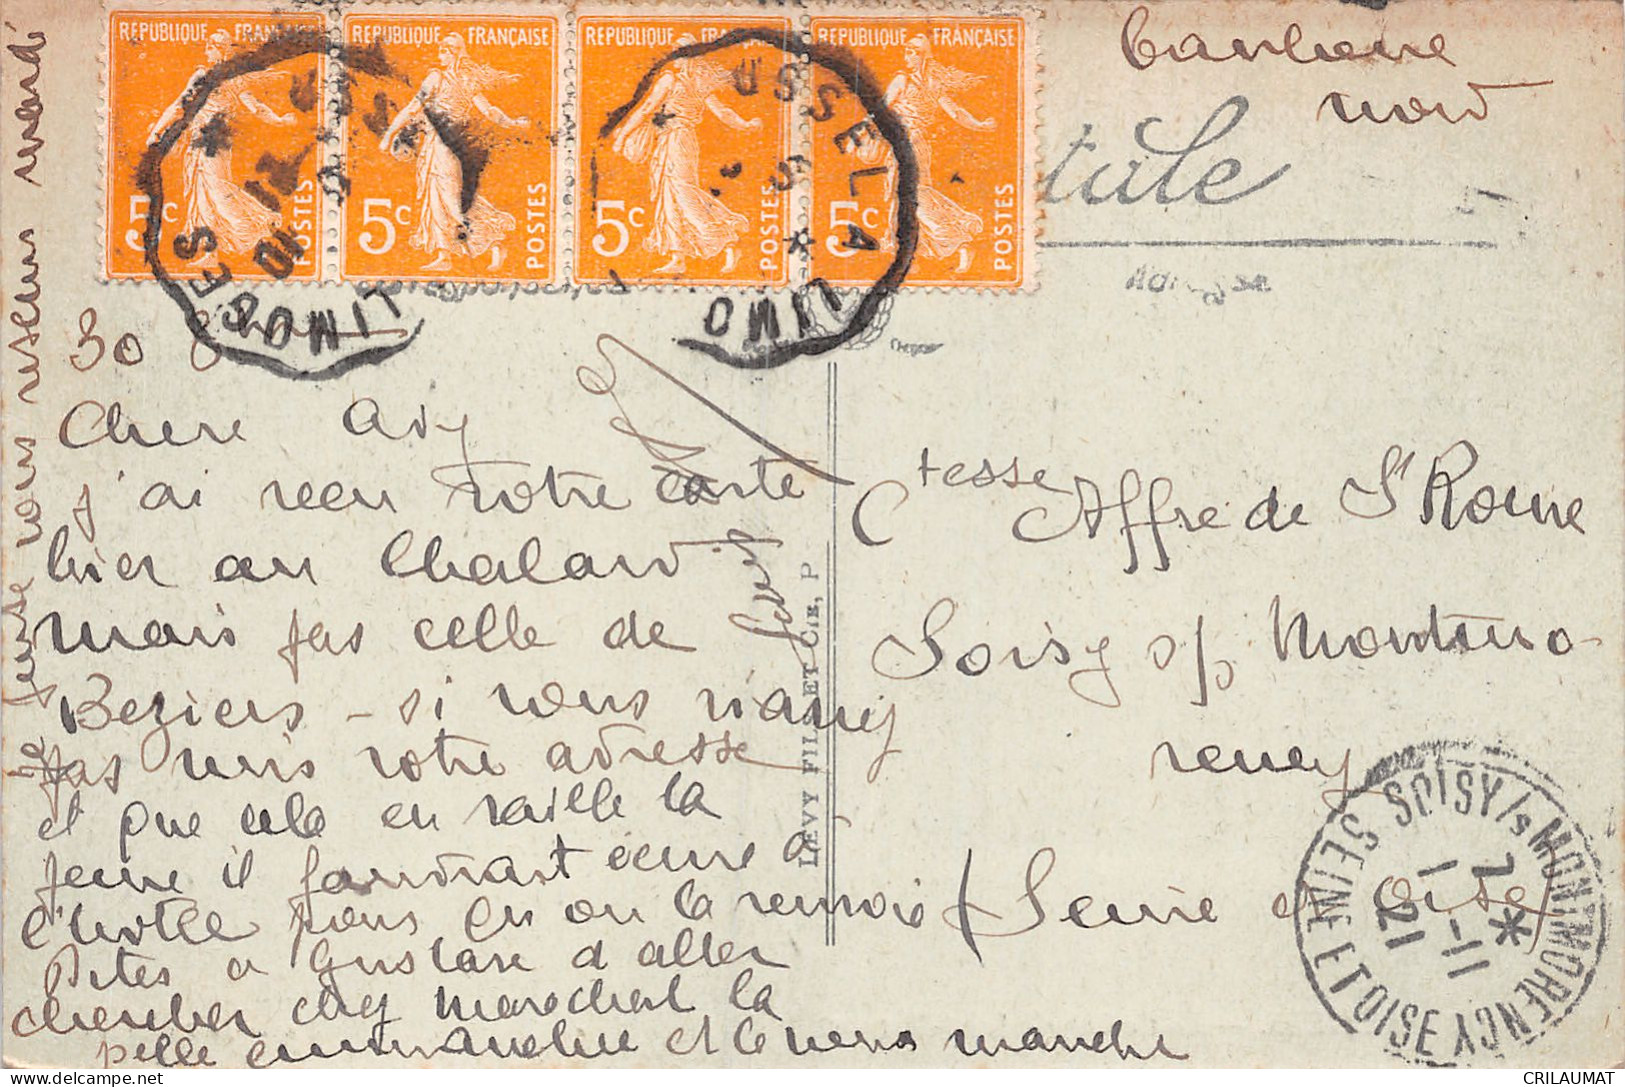 REPUBLIQUE FRANÇAISE REPUBLIQUE FRANÇAISE REPUBLIQUE FRANÇAISE REPUBLIQUE FRANÇAISE
5c POSTES 5c POSTES 5c POSTES 5c POSTES
LIMOGES
USSEL A LIMO
nord
30
Chere
j'ai recu votre carte
hier au Chalard
mais pas celle de
Beziers - si vous n'avez
pas mis votre adresse
et que cela en vaille la
peine il faudrait ecrire a
l'hotel pour qu on la renvoie
Dites a Gustave d aller
chercher chez Marechal la
pelle emmanchee et le vieux manche
LEVY FILS ET CIE, P
Ctesse Affre de St Rome
Soisy s/ Montmo-
rency
Seine et Oise
SOISY/s MONTMORENCY
SEINE ET OISE
7 *
1-11
21
CRILAUMAT